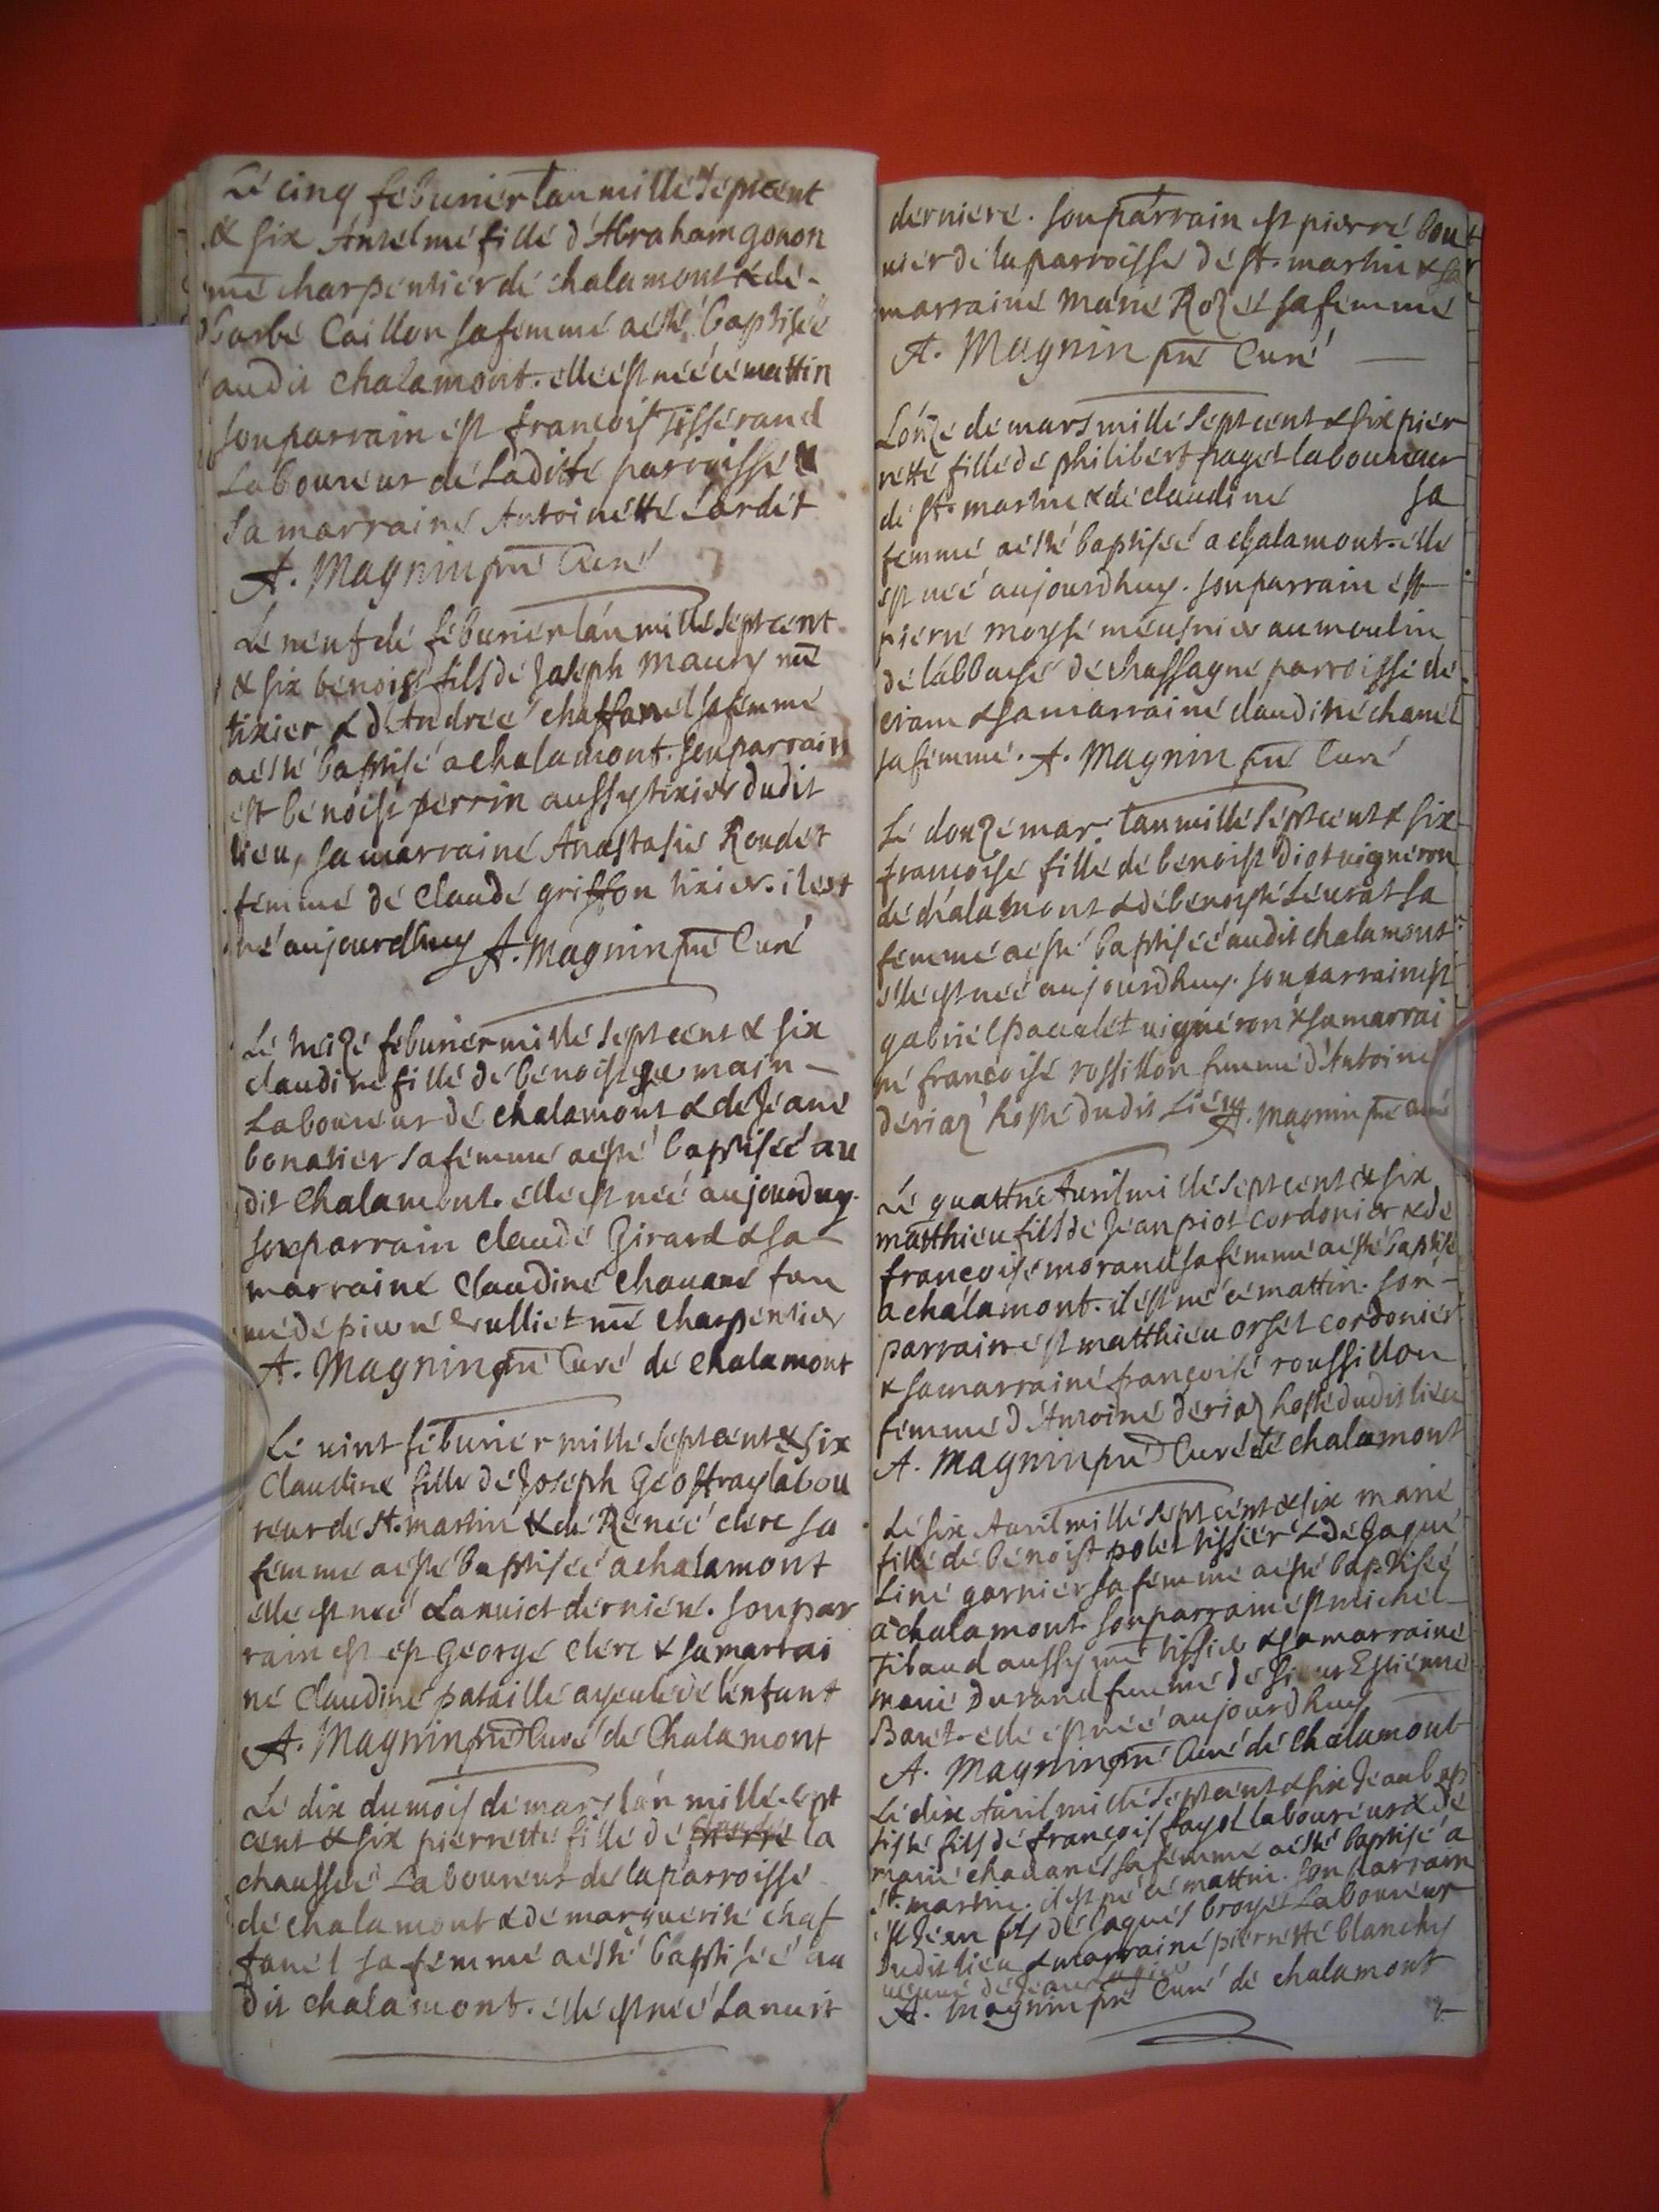 Le cinq feburier l'an mille sept cent
& six Antelme fille d'Abraham gonon
me charpentier de chalamont & de
barbe Caillon sa femme a esté baptisée
audit chalamont. elle est neé ce mattin
son parrain est françois Tisserand
Laboureur de Laditte parroisse &
sa marraine Antoinette Lardet
A. Magnin pre Curé
Le neuf de feburier l'an mille sept cent
& six benoist fils de Joseph Maury me
tixier & d'Andreé chaffanel sa femme
a esté baptisé a chalamont. son parrain
est benoist perrin aussy tixier dudit
lieu, sa marraine Anastasie Roudet
femme de Claude griffon tixier. il est
né aujourdhuy A. Magnin pre Curé
Le treize feburier mille sept cent & six
claudine fille de benoist germain
Laboureur de chalamont & de Jeane
bonatier sa femme a esté baptisée au
dit Chalamont. elle est neé aujourduy.
son parrain claude Girard & sa
marraine Claudine Chauane fem
me de pierre Rulliet me charpentier
A. Magnin pre Curé de Chalamont
Le uint feburier mille sept cent & six
Claudine fille de Joseph Geoffray labou
reur de st. martin & de Reneé clerc sa
femme a esté baptiseé a chalamont
elle est neé La nuict derniere. son par
rain est est George Clerc & sa marrai
ne Claudine pataille ayeule de l'enfant
A. Magnin pre Curé de Chalamont
Le dix du mois de mars lan mille sept
cent & six pierrette fille de la
chausseé Laboureur de la parroisse
de chalamont & de marguerite chaf
fanel sa femme a esté baptiseé au
dit chalamont. elle est neé La nuit
derniere. son parrain est pierre bou
uier de la parroisse de st. martin & sa
marraine Marie Rozet sa femme
A. Magnin pre Curé
L'onze de mars mille sept cent & six pier
rette fille de philibert paget laboureur
de st. martin & de claudine sa
femme a esté baptiseé a chalamont. elle
est neé aujourdhuy. son parrain est
pierre moyse meusnier au moulin
de labbaye de chassagne parroisse de
cram & sa marraine claudine chanel
sa femme. A. Magnin pre Curé
Le douze mar. l'an mille sept cent & six
françoise fille de benoist Diot uigneron
de chalamont & de benoiste Leurat sa
femme a esté baptiseé audit chalamont
elle est neé aujourdhuy. son parrain est
gabriel pauulet uigneron & sa marrai
ne françoise rossillon femme d'Antoine
deriaz hoste dudit Lieu A. Magnin pre curé
Le quattre Auril mille sept cent & six
matthieu fils de Jean piot cordonier & de
françoise morand sa femme a esté baptisé
a chalamont. il est né ce mattin. son
parrain est matthieu orset cordonier
& sa marraine françoise roussillon
femme d'Antoine deriaz hoste dudit lieu
A. Magnin pre Curé de chalamont
Le six Auril mille sept cent & six marie
fille de benoist polet tissier & de Jaque
Line garnier sa femme a esté baptiseé
a chalamont son parrain est michel
Tibaud aussy me tissier & sa marraine
marie Durand femme de sieur Estienne
Baret. elle est neé aujourdhuy
A. Magnin pre Curé de Chalamont
Le dix Auril mille sept cent & six Jean bap
tiste fils de françois fayol laboureur & de
marie chauanes sa femme a esté baptisé a
st. martin. il est né ce mattin. son parrain
est Jean fils de Jaques broyet Laboureur
dudit lieu & marraine pierrette blanchy
ueuue de Jean
A. Magnin pre Curé de chalamont